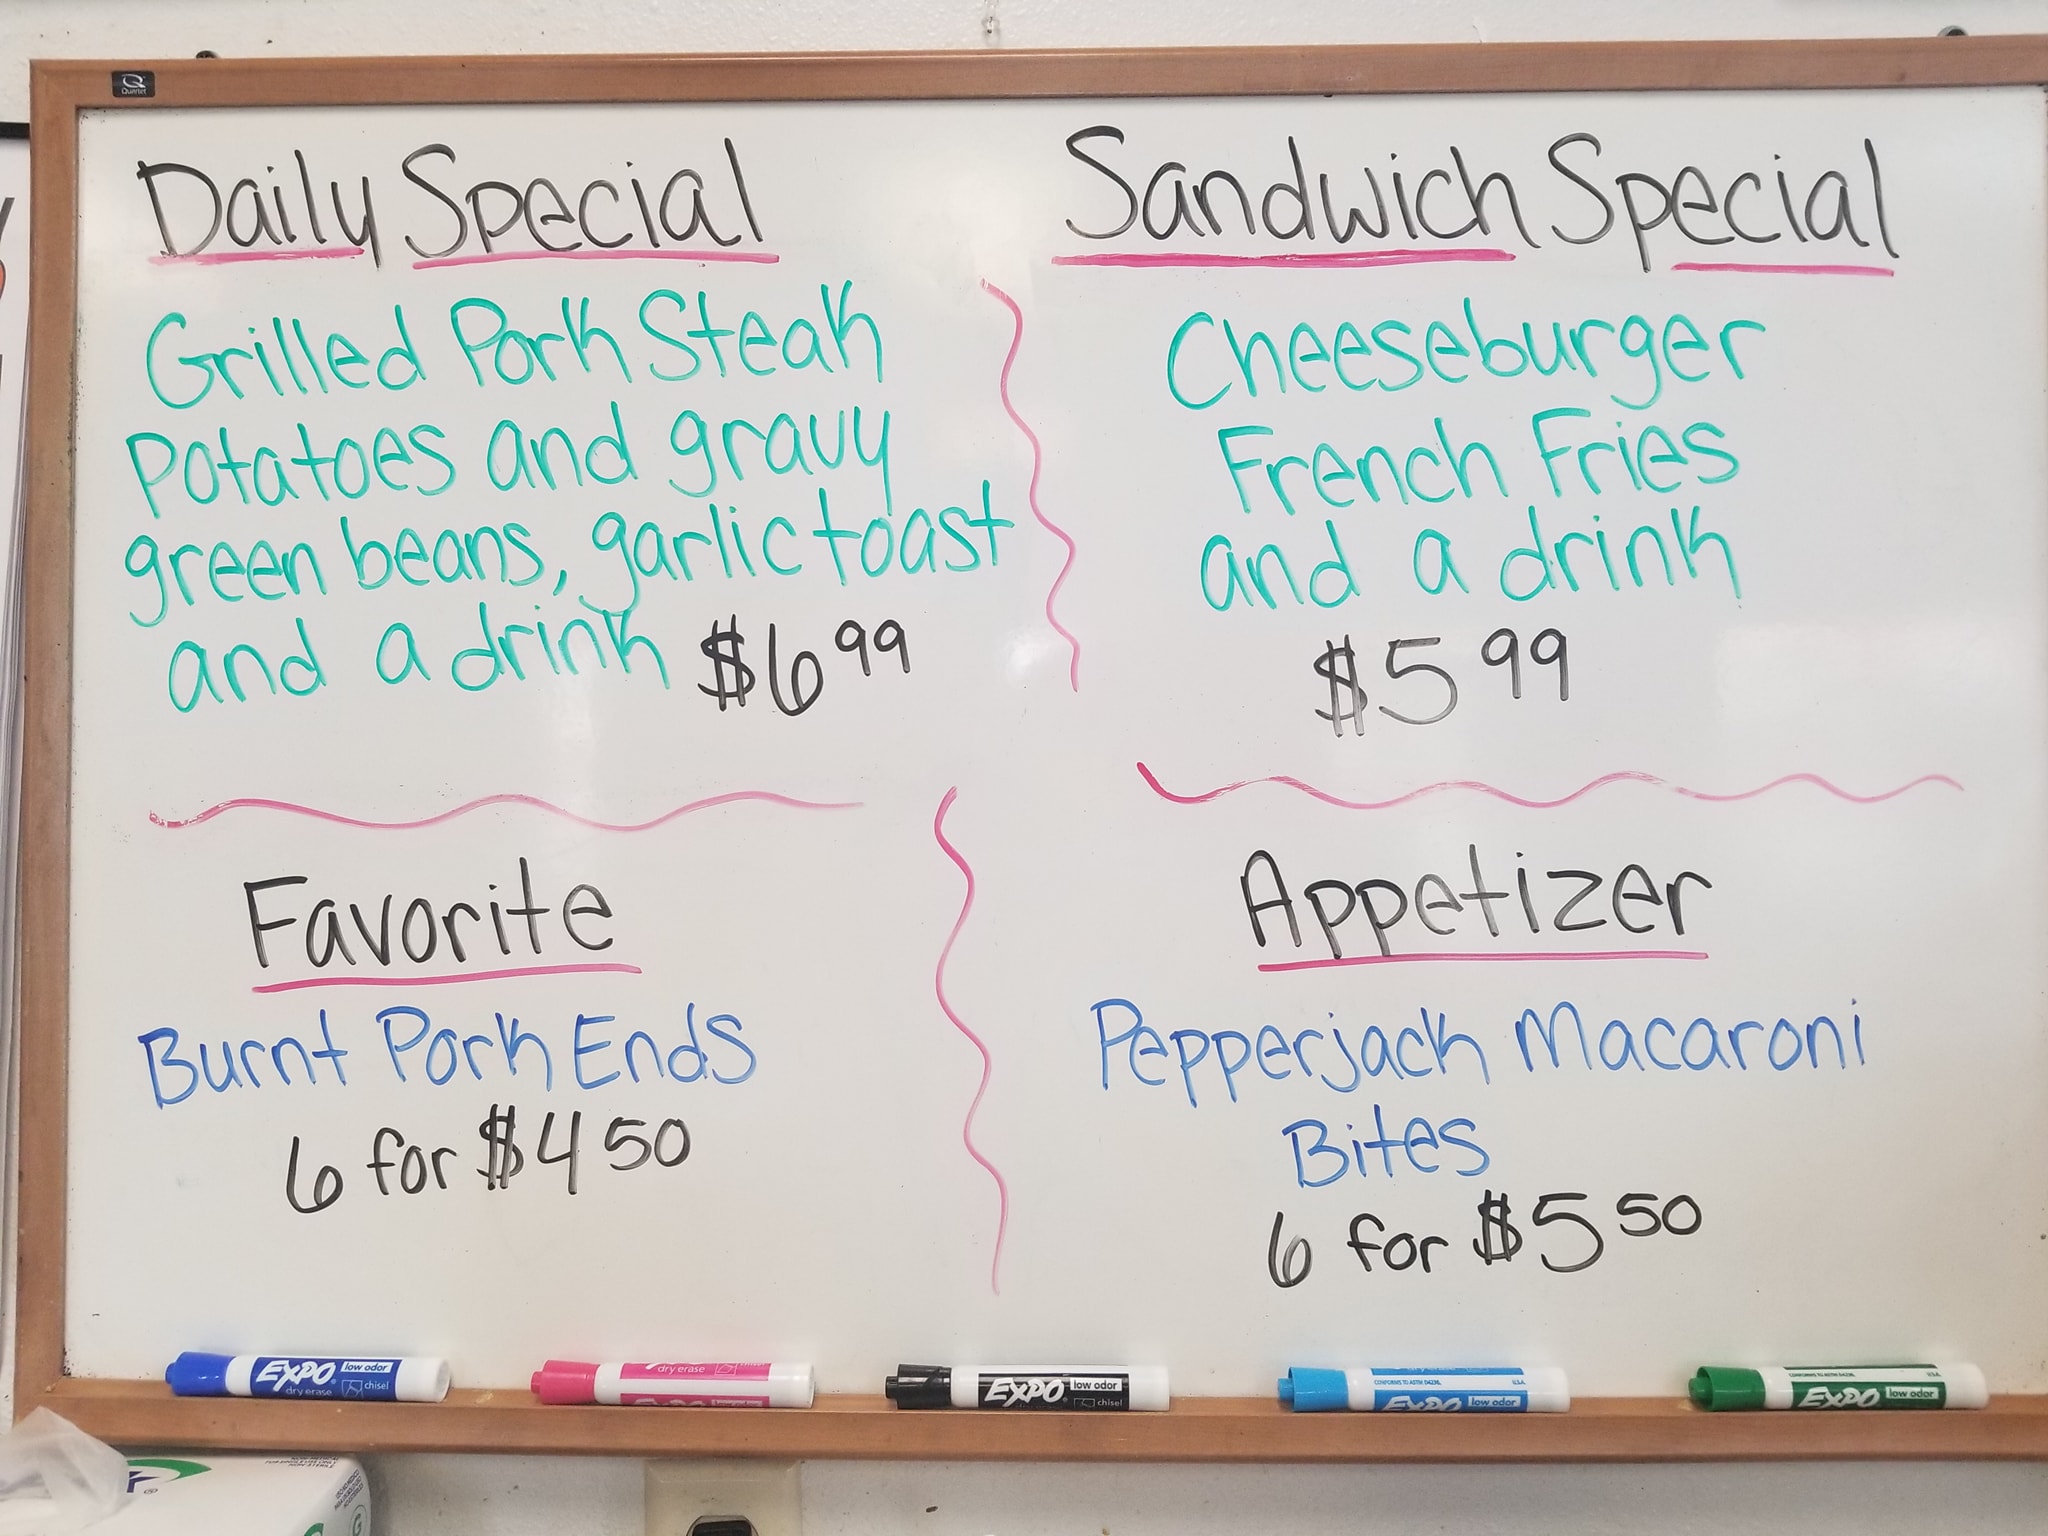 Quartet
Daily Special
Grilled Pork Steak
Potatoes and gravy
green beans, garlic toast
and a drink $6 99
Sandwich Special
Cheeseburger
French Fries
and a drink
$5 99
Favorite
Burnt Pork Ends
6 for $4 50
Appetizer
Pepperjack Macaroni
Bites
6 for $5 50
EXPO low odor
dry erase chisel
dry erase
EXPO low odor
chisel
CONFORMS TO ASTM D4236. U.S.A.
EXPO low odor
CONFORMS TO ASTM D4236. U.S.A.
EXPO low odor